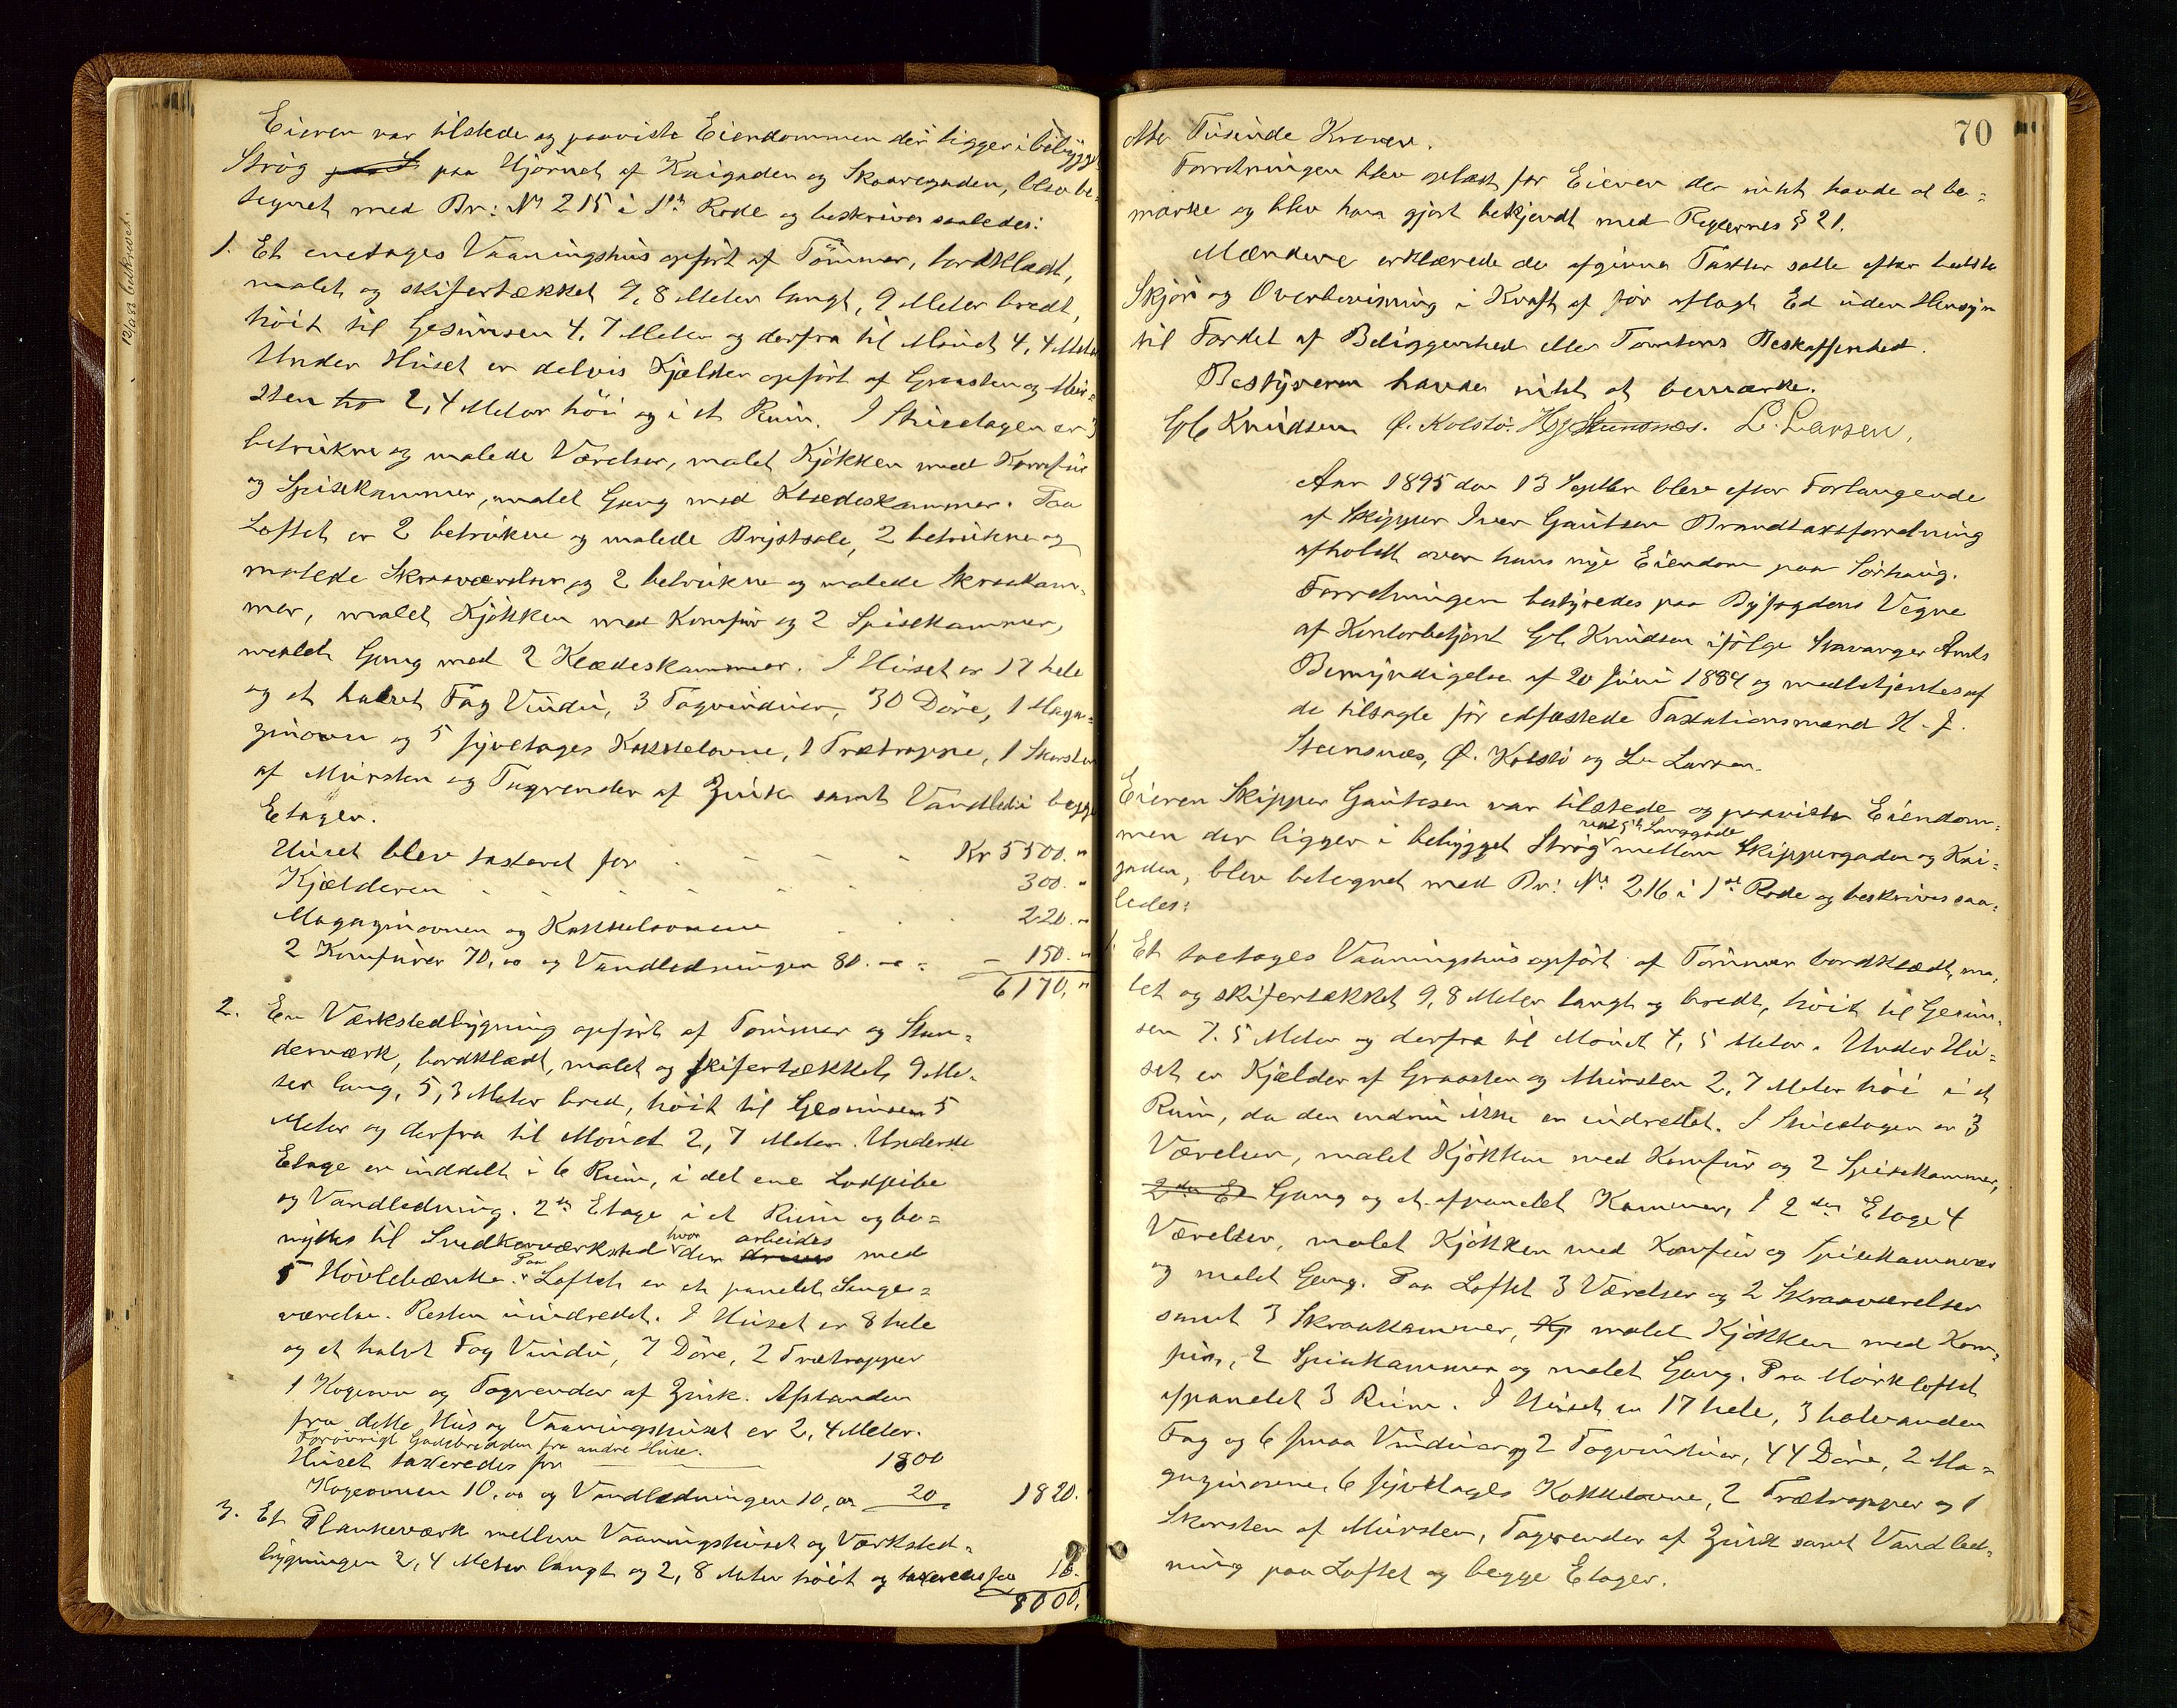 Eieren var tilstede og paaviste Eiendommen der ligger i bebygget
Strøg paa Hjørnet af Kaigaden og Skaaregaden, blev be-
tegnet med Br: No 215 i 1ste Rode og beskrives saaledes:
1. Et enetages Vaaningshus opført af Tømmer, bordklædt,
malet og skifertækket 9,8 Meter langt, 9 Meter bredt,
høit til Gesimsen 4,7 Meter og derfra til Mønet 4,4 Meter
Under Huset er delvis Kjælder opført af Graasten og Mur-
sten 2,4 Meter høi og i et Rum. I Stueetagen er 3
betrukne og malede Værelser, malet Kjøkken med Komfur
og Spisekammer, malet Gang med Klædeskammer. Paa
Loftet er 2 betrukne og malede Brystsale, 2 betrukne og
malede Skraaværelser og 2 betrukne og malede Skraakam-
mer, malet Kjøkken med Komfur og 2 Spisekammer,
malet Gang med 2 Klædeskammer. I Huset er 17 hele
og et halvt Fag Vindu, 3 Tagvinduer, 30 Døre, 1 Maga-
zinovn og 5 syvetages Kakkelovne, 1 Trætrappe, 1 Skorsten
af Mursten og Tagrender af Zink samt Vandledn i begge
Etager.
Huset blev taxeret for . - - - Kr 5500. "
Kjælderen - - - - 300. "
Magazinovnen og Kakkelovnene . . 220. "
2 Komfurer 70,00 og Vandledningen 80.00 = - 150. "
6170, "
2. En Værkstedbygning opført af Tømmer og Sten-
derværk, bordklædt, malet og skifertækket, 9 Me-
ter lang, 5,3 Meter bred, høit til Gesimsen 5
Meter og derfra til Mønet 2,7 Meter. Underste
Etage er inddelt i 6 Rum, i det ene Lodpibe
og Vandledning. 2den Etage i et Rum og be-
nyttes til Snedkerværksted hvor der arbeides med
5 Høvlebænke. Paa Loftet er et panelet Senge-
værelse. Resten uindredet. I Huset er 8 hele
og et halvt Fag Vindu, 7 Døre, 2 Trætrapper
1 Kogeovn og Tagrender af Zink. Afstanden
fra dette Hus og Vaaningshuset er 2,4 Meter.
Forøvrigt Gadebredden fra andre Huse.
Huset taxeredes for 1800
Kogeovnen 10,00 og Vandledningen 10,00 20 1820.
3. Et Plankeværk mellem Vaaningshuset og Værksted-
bygningen 2,4 Meter langt og 2,8 Meter høit og taxeredes for 10.
8000,
70
otte Tusinde Kroner.
Forretningen blev oplæst for Eieren der intet havde at be-
mærke og blev han gjort bekjendt med Reglernes § 21.
Mændene erklærede de afgivne Taxter satte efter bedste
Skjøn og Overbevisning i Kraft af før aflagt Ed uden Hensyn
til Fordel af Beliggenhed eller Tomtens Beskaffenhed.
Bestyreren havde intet at bemærke.
Knudsen Ø. Kolstø. H J Stensnæs. L. Larsen,
Aar 1895 den 13 Septbr blev efter Forlangende
af Skipper Iver Gautesen Brandtaxtforretning
afholdt over hans nye Eiendom paa Sørhaug.
Forretningen bestyredes paa Byfogdens Vegne
af Kontorbetjent Knudsen ifølge Stavanger Amts
Bemyndigelse af 20 Juni 1884 og medbetjentes af
de tilsagte før edfæstede Taxtationsmænd H. J.
Stensnæs, Ø. Kolstø og L. Larsen.
Eieren Skipper Gautesen var tilstede og paaviste Eiendom-
men der ligger i bebygget Strøg ved Langgade mellem Skippergaden og Kai-
gaden, blev betegnet med Br: No 216 i 1ste Rode og beskrives saa-
ledes:
1. Et toetages Vaaningshus opført af Tømmer bordklædt, ma-
let og skifertækket 9,8 Meter langt og bredt, høit til Gesim-
sen 7.5 Meter og derfra til Mønet 4,5 Meter. Under Hu-
set er Kjælder af Graasten og Mursten 2,7 Meter høi i et
Rum, da den endnu ikke er indrettet. I Stueetagen er 3
Værelser, malet Kjøkken med Komfur og 2 Spisekammer,
2den Et Gang og et afpanelet Kammer, I 2den Etage 4
Værelser, malet Kjøkken med Komfur og Spisekammer
og malet Gang. Paa Loftet 3 Værelser og 2 Skraaværelser
samt 3 Skraakammer, Kj malet Kjøkken med Kom-
fur, 2 Spisekammer og malet Gang. Paa Mørkloftet
afpanelet 3 Rum. I Huset er 17 hele, 3 halvanden
Fag og 6 smaa Vinduer og 2 Tagvinduer, 44 Døre, 2 Ma-
gazinovne, 6 syvetages Kakkelovne, 2 Trætrapper og 1
Skorsten af Mursten, Tagrender af Zink samt Vandled-
ning paa Loftet og begge Etager.